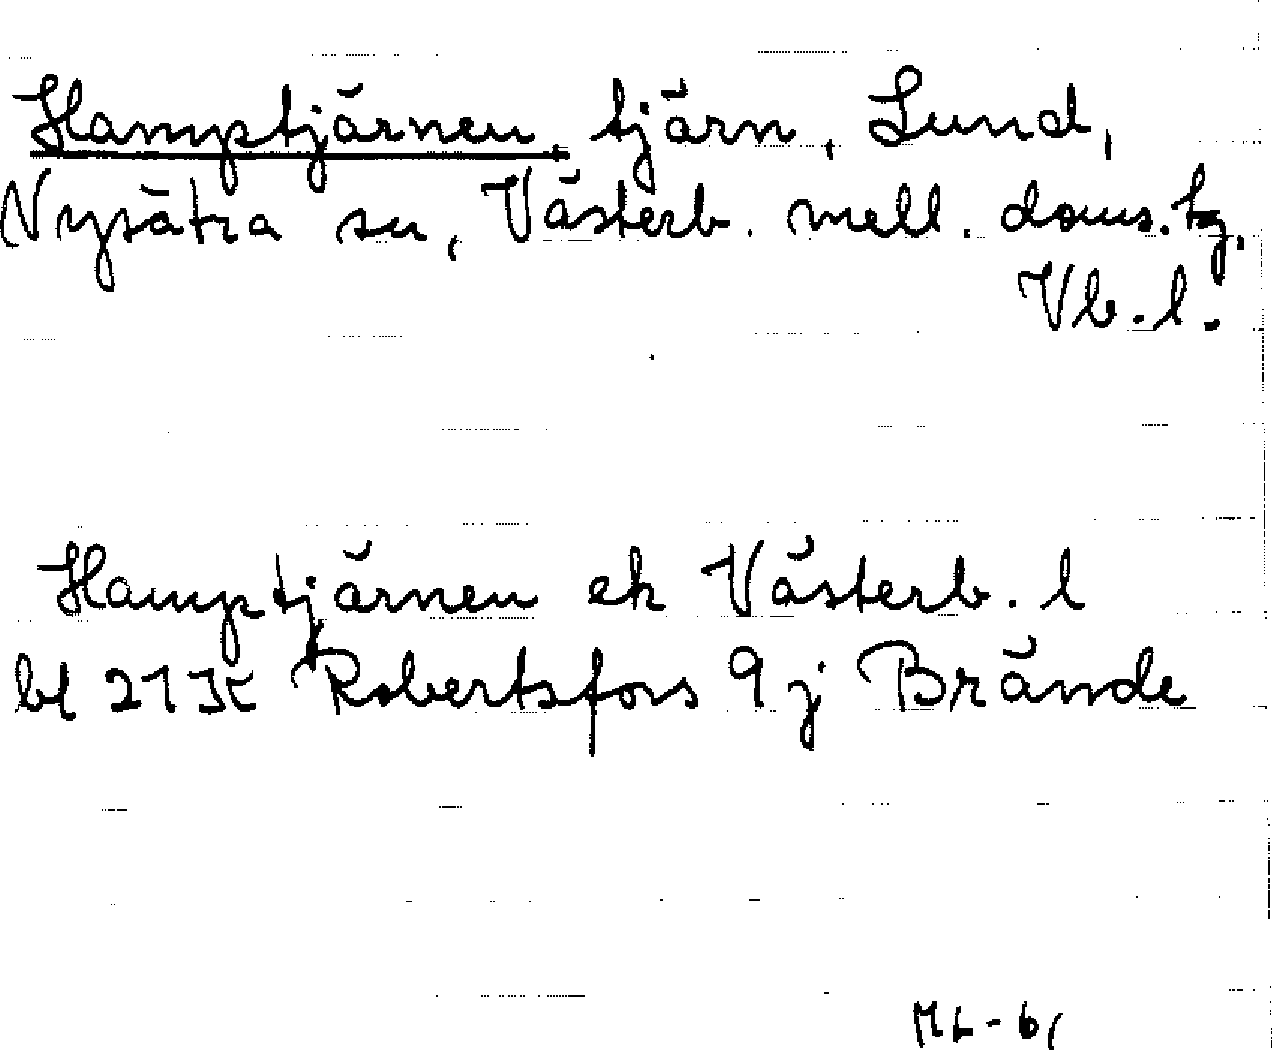 Hamptjärnen, tjärn, Lund,
Nysätra sn, Västerb. mell. doms. tg,
Vb. l.
Hamptjärnen ek Västerb. l
bl 21 K Robertsfors 9 j Brände